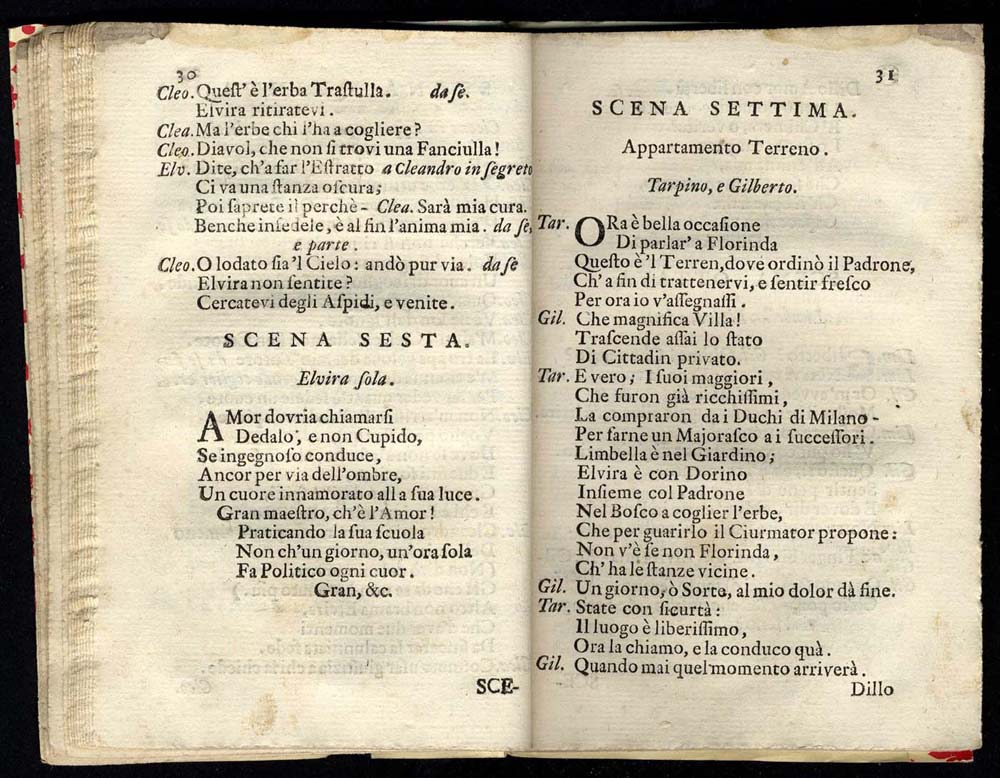 30
Cleo. Quest' è l'erba Trastulla. da se.
Elvira ritiratevi.
Clea. Ma l'erbe chi l'ha a cogliere?
Cleo. Diavol, che non si trovi una Fanciulla!
Elv. Dite, ch'a far l'Estratto a Cleandro in segreto
Ci va una stanza oscura;
Poi saprete il perchè - Clea. Sarà mia cura.
Benche infedele, è al fin l'anima mia. da se,
e parte.
Cleo. O lodato sia 'l Cielo: andò pur via. da se
Elvira non sentite?
Cercatevi degli Aspidi, e venite.
SCENA SESTA.
Elvira sola.
AMor dovria chiamarsi
Dedalo, e non Cupido,
Se ingegnoso conduce,
Ancor per via dell'ombre,
Un cuore innamorato alla sua luce.
Gran maestro, ch'è l'Amor!
Praticando la sua scuola
Non ch'un giorno, un'ora sola
Fa Politico ogni cuor.
Gran, &c.
SCE-
31
SCENA SETTIMA.
Appartamento Terreno.
Tarpino, e Gilberto.
Tar. ORa è bella occasione
Di parlar' a Florinda
Questo è 'l Terren, dove ordinò il Padrone,
Ch' a fin di trattenervi, e sentir fresco
Per ora io v'assegnassi.
Gil. Che magnifica Villa!
Trascende assai lo stato
Di Cittadin privato.
Tar. E vero; I suoi maggiori,
Che furon già ricchissimi,
La compraron da i Duchi di Milano -
Per farne un Majorasco a i successori.
Limbella è nel Giardino;
Elvira è con Dorino
Insieme col Padrone
Nel Bosco a coglier l'erbe,
Che per guarirlo il Ciurmator propone:
Non v'è se non Florinda,
Ch' ha le stanze vicine.
Gil. Un giorno, ò Sorte, al mio dolor dà fine.
Tar. State con sicurtà:
Il luogo è liberissimo,
Ora la chiamo, e la conduco quà.
Gil. Quando mai quel momento arriverà.
Dillo